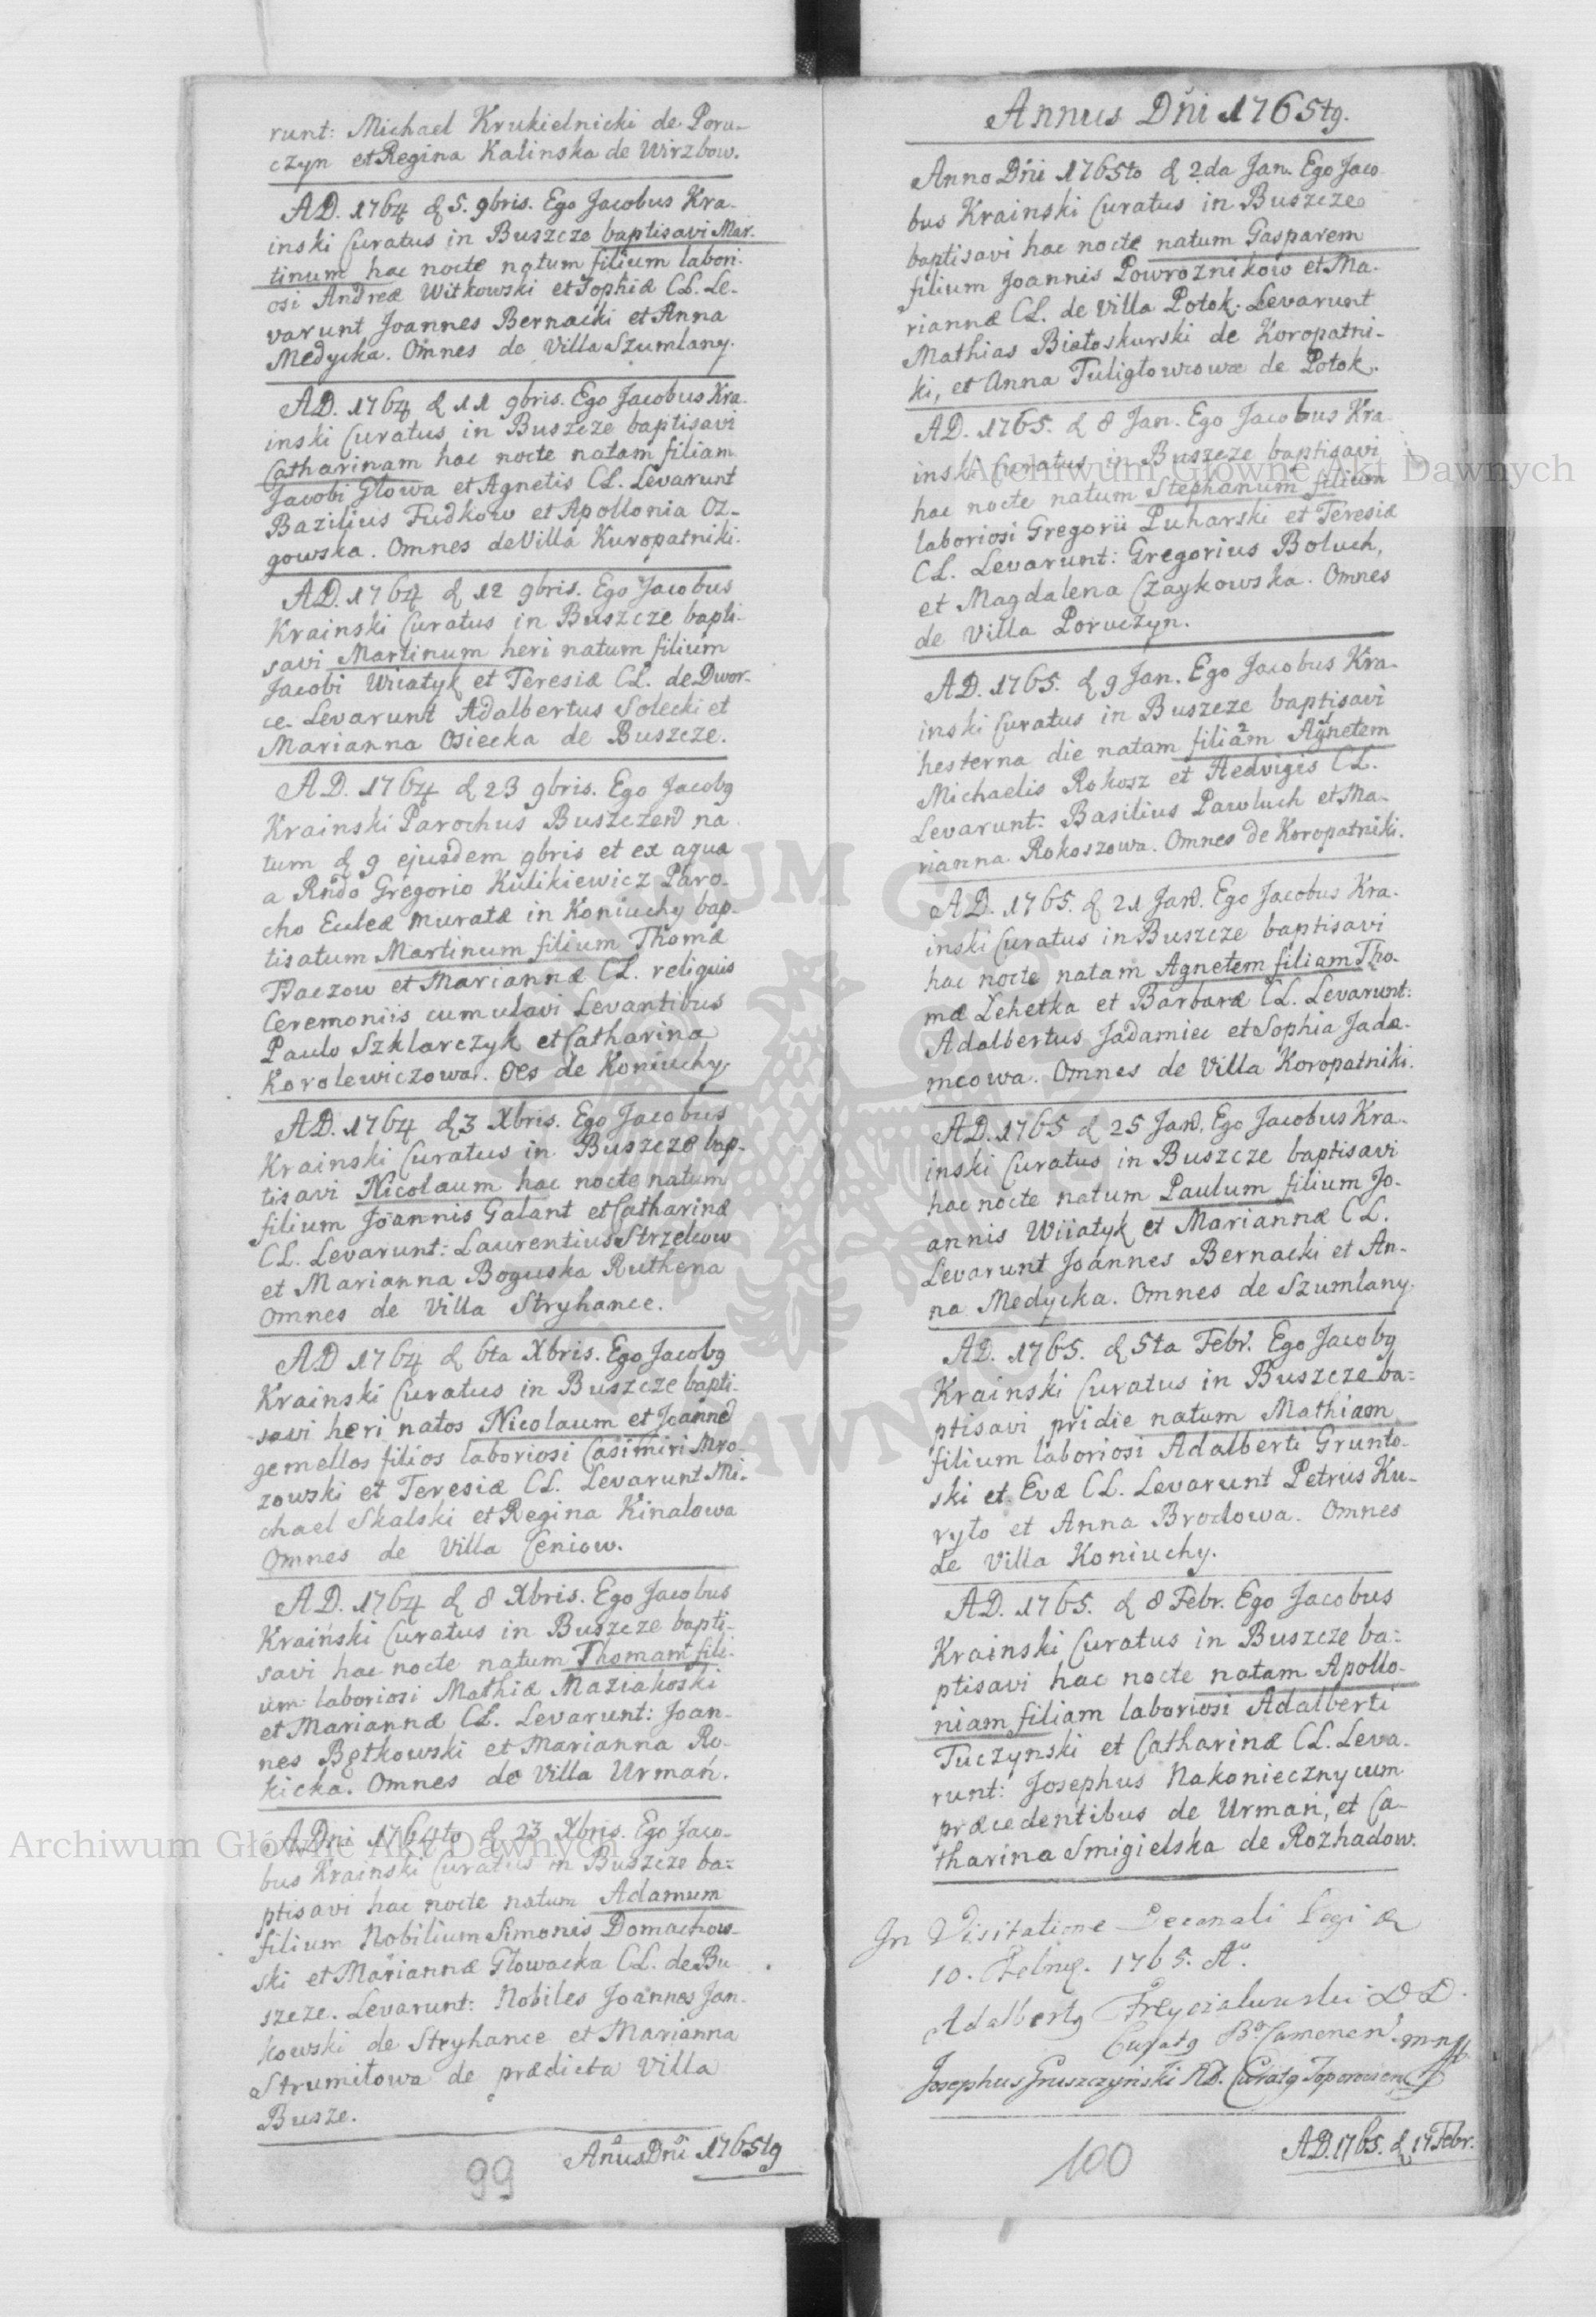 runt: Michael Krukielnicki de Poru-
czyn et Regina Kalinska de Wirzbow.
AD. 1764 d 5. 9bris. Ego Jacobus Kra-
inski Curatus in Buszcze baptisavi Mar-
tinum hac nocte natum filium labori-
osi Andreæ Witkowski et Sophiæ CL. Le-
varunt Joannes Bernacki et Anna
Medycka. Omnes de Villa Szumlany.
AD. 1764 d 11 9bris. Ego Jacobus Kra-
inski Curatus in Buszcze baptisavi
Catharinam hac nocte natam filiam
Jacobi Głowa et Agnetis CL. Levarunt
Bazilius Fudkow et Apollonia Oz-
gowska. Omnes de Villa Kuropatniki.
AD. 1764 d 12 9bris. Ego Jacobus
Krainski Curatus in Buszcze bapti-
savi Martinum heri natum filium
Jacobi Wiatyk et Teresiæ CL. de Dwor-
ce. Levarunt Adalbertus Solecki et
Marianna Osiecka de Buszcze.
AD. 1764 d 23 9bris. Ego Jacobg
Krainski Parochus Buszczen na
tum d 9 ejusdem 9bris et ex aqua
a Rndo Gregorio Kulikiewicz Paro-
cho Ecclæ muratæ in Koniuchy bap-
tisatum Martinum filium Thomæ
Tkaczow et Mariannæ CL. reliquis
Ceremoniis cumulavi Levantibus
Paulo Szklarczyk et Catharina
Korolewiczowa. Oes de Koniuchy.
AD. 1764 d 3 Xbris. Ego Jacobus
Krainski Curatus in Buszcze bap-
tisavi Nicolaum hac nocte natum
filium Joannis Galant et Catharinæ
CL. Levarunt: Laurentius Strzelcow
et Marianna Boguska Ruthena
Omnes de Villa Stryhance.
AD 1764 d 6ta Xbris. Ego Jacobg
Krainski Curatus in Buszcze bapti-
savi heri natos Nicolaum et Joannē
gemellos filios laboriosi Casimiri Mro-
zowski et Teresiæ CL. Levarunt Mi-
chael Skalski et Regina Kinalowa
Omnes de Villa Ceniow.
AD. 1764 d 8 Xbris. Ego Jacobus
Kraiński Curatus in Buszcze bapti-
savi hac nocte natum Thomam fili-
um laboriosi Mathiæ Maziakoski
et Mariannæ CL. Levarunt: Joan-
nes Bętkowski et Marianna Ro-
kicka. Omnes de Villa Urmań.
A Dni 1764to d 23 Xbris. Ego Jaco-
bus Krainski Curatus in Buszcze ba=
ptisavi hac nocte natum Adamum
filium Nobilium Simonis Domachow-
ski et Mariannæ Głowacka CL. de Bu
szcze. Levarunt: Nobiles Joannes Jan-
kowski de Stryhance et Marianna
Strumiłowa de prædicta Villa
Busze.
Añus Dni 1765tg
99
Annus Dñi 1765tg.
Anno Dñi 1765to d 2da Jan. Ego Jaco
bus Krainski Curatus in Buszcze
baptisavi hac nocte natum Gasparem
filium Joannis Powroznikow et Ma-
riannæ CL. de Villa Potok. Levarunt
Mathias Białoskurski de Koropatni-
ki, et Anna Tuligłowiowa de Potok.
AD. 1765. d 8 Jan. Ego Jacobus Kra
inski Curatus in Buszcze baptisavi
hac nocte natum Stephanum filium
laboriosi Gregorii Puharski et Teresiæ
CL. Levarunt: Gregorius Boluch,
et Magdalena Czaykowska. Omnes
de Villa Poruczyn.
AD. 1765. d 9 Jan. Ego Jacobus Kra-
inski Curatus in Buszcze baptisavi
hesterna die natam filiam Agnetem
Michaelis Rokosz et Hedvigis CL.
Levarunt: Basilius Pawluch et Ma-
rianna Rokoszowa. Omnes de Koropatniki.
AD. 1765. d 21 Jan. Ego Jacobus Kra-
inski Curatus in Buszcze baptisavi
hac nocte natam Agnetem filiam Tho-
mæ Lehetka et Barbaræ CL. Levarunt:
Adalbertus Jadamiec et Sophia Jada-
mcowa. Omnes de Villa Koropatniki.
AD. 1765 d 25 Jan. Ego Jacobus Kra-
inski Curatus in Buszcze baptisavi
hac nocte natum Paulum filium Jo-
annis Wiiatyk et Mariannæ CL.
Levarunt Joannes Bernacki et An-
na Medycka. Omnes de Szumlany.
AD. 1765. d 5ta Febr. Ego Jacobg
Krainski Curatus in Buszcze ba=
ptisavi pridie natum Mathiam
filium laboriosi Adalberti Grunto-
ski et Evæ CL. Levarunt Petrus Ku-
ryło et Anna Brodowa. Omnes
de Villa Koniuchy.
AD. 1765. d 8 Febr. Ego Jacobus
Krainski Curatus in Buszcze ba=
ptisavi hac nocte natam Apollo-
niam filiam laboriosi Adalberti
Tuczynski et Catharinæ CL. Leva-
runt: Josephus Nakonieczny cum
præcedentibus de Urmań, et Ca-
tharina Smigielska de Rozhadow.
In Visitatione Decanali Legi d
10. 1765. Ao.
Adalbertg DD.
Curatg
Josephus Gruszczyński AD. Curatg
AD. 1765. d 17 Febr.
100
Archiwum Główne Akt Dawnych
Archiwum Główne Akt Dawnych